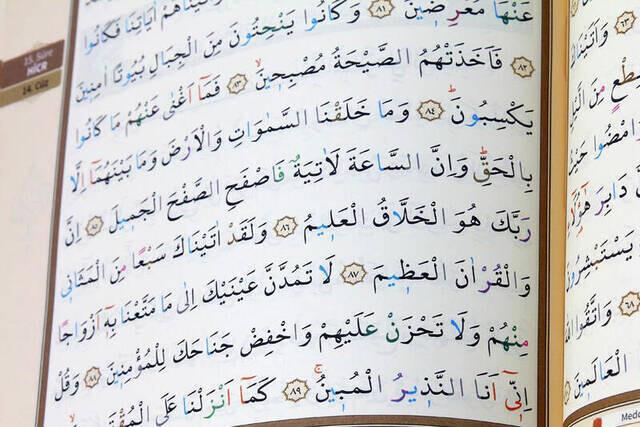 15. Sûre
HİCR
14. Cüz
عَنْهَا مُعْرِض۪ينَۙ ﴿٨١﴾ وَكَانُوا يَنْحِتُونَ مِنَ الْجِبَالِ بُيُوتًا اٰمِن۪ينَ
﴿٨٢﴾ فَاَخَذَتْهُمُ الصَّيْحَةُ مُصْبِح۪ينَۙ ﴿٨٣﴾ فَمَٓا اَغْنٰى عَنْهُمْ مَا كَانُوا
يَكْسِبُونَۜ ﴿٨٤﴾ وَمَا خَلَقْنَا السَّمٰوَاتِ وَالْاَرْضَ وَمَا بَيْنَهُمَٓا اِلَّا
بِالْحَقِّۜ وَاِنَّ السَّاعَةَ لَاٰتِيَةٌ فَاصْفَحِ الصَّفْحَ الْجَم۪يلَ ﴿٨٥﴾ اِنَّ
رَبَّكَ هُوَ الْخَلَّاقُ الْعَل۪يمُ ﴿٨٦﴾ وَلَقَدْ اٰتَيْنَاكَ سَبْعًا مِنَ الْمَثَان۪ي
وَالْقُرْاٰنَ الْعَظ۪يمَ ﴿٨٧﴾ لَا تَمُدَّنَّ عَيْنَيْكَ اِلٰى مَا مَتَّعْنَا بِه۪ٓ اَزْوَاجًا
مِنْهُمْ وَلَا تَحْزَنْ عَلَيْهِمْ وَاخْفِضْ جَنَاحَكَ لِلْمُؤْمِن۪ينَ ﴿٨٨﴾ وَقُلْ
اِنّ۪ٓي اَنَا النَّذ۪يرُ الْمُب۪ينُۚ ﴿٨٩﴾ كَمَٓا اَنْزَلْنَا عَلَى
﴿٦٣﴾ وَاَتَيْنَاكَ
مِنَ الَّيْلِ
وَامْضُوا حَيْثُ
دَابِرَ هٰٓؤُ۬لَٓاءِ
يَسْتَبْشِرُونَ
﴿٦٨﴾ وَاتَّقُوا اللّٰهَ
الْعَالَم۪ينَ